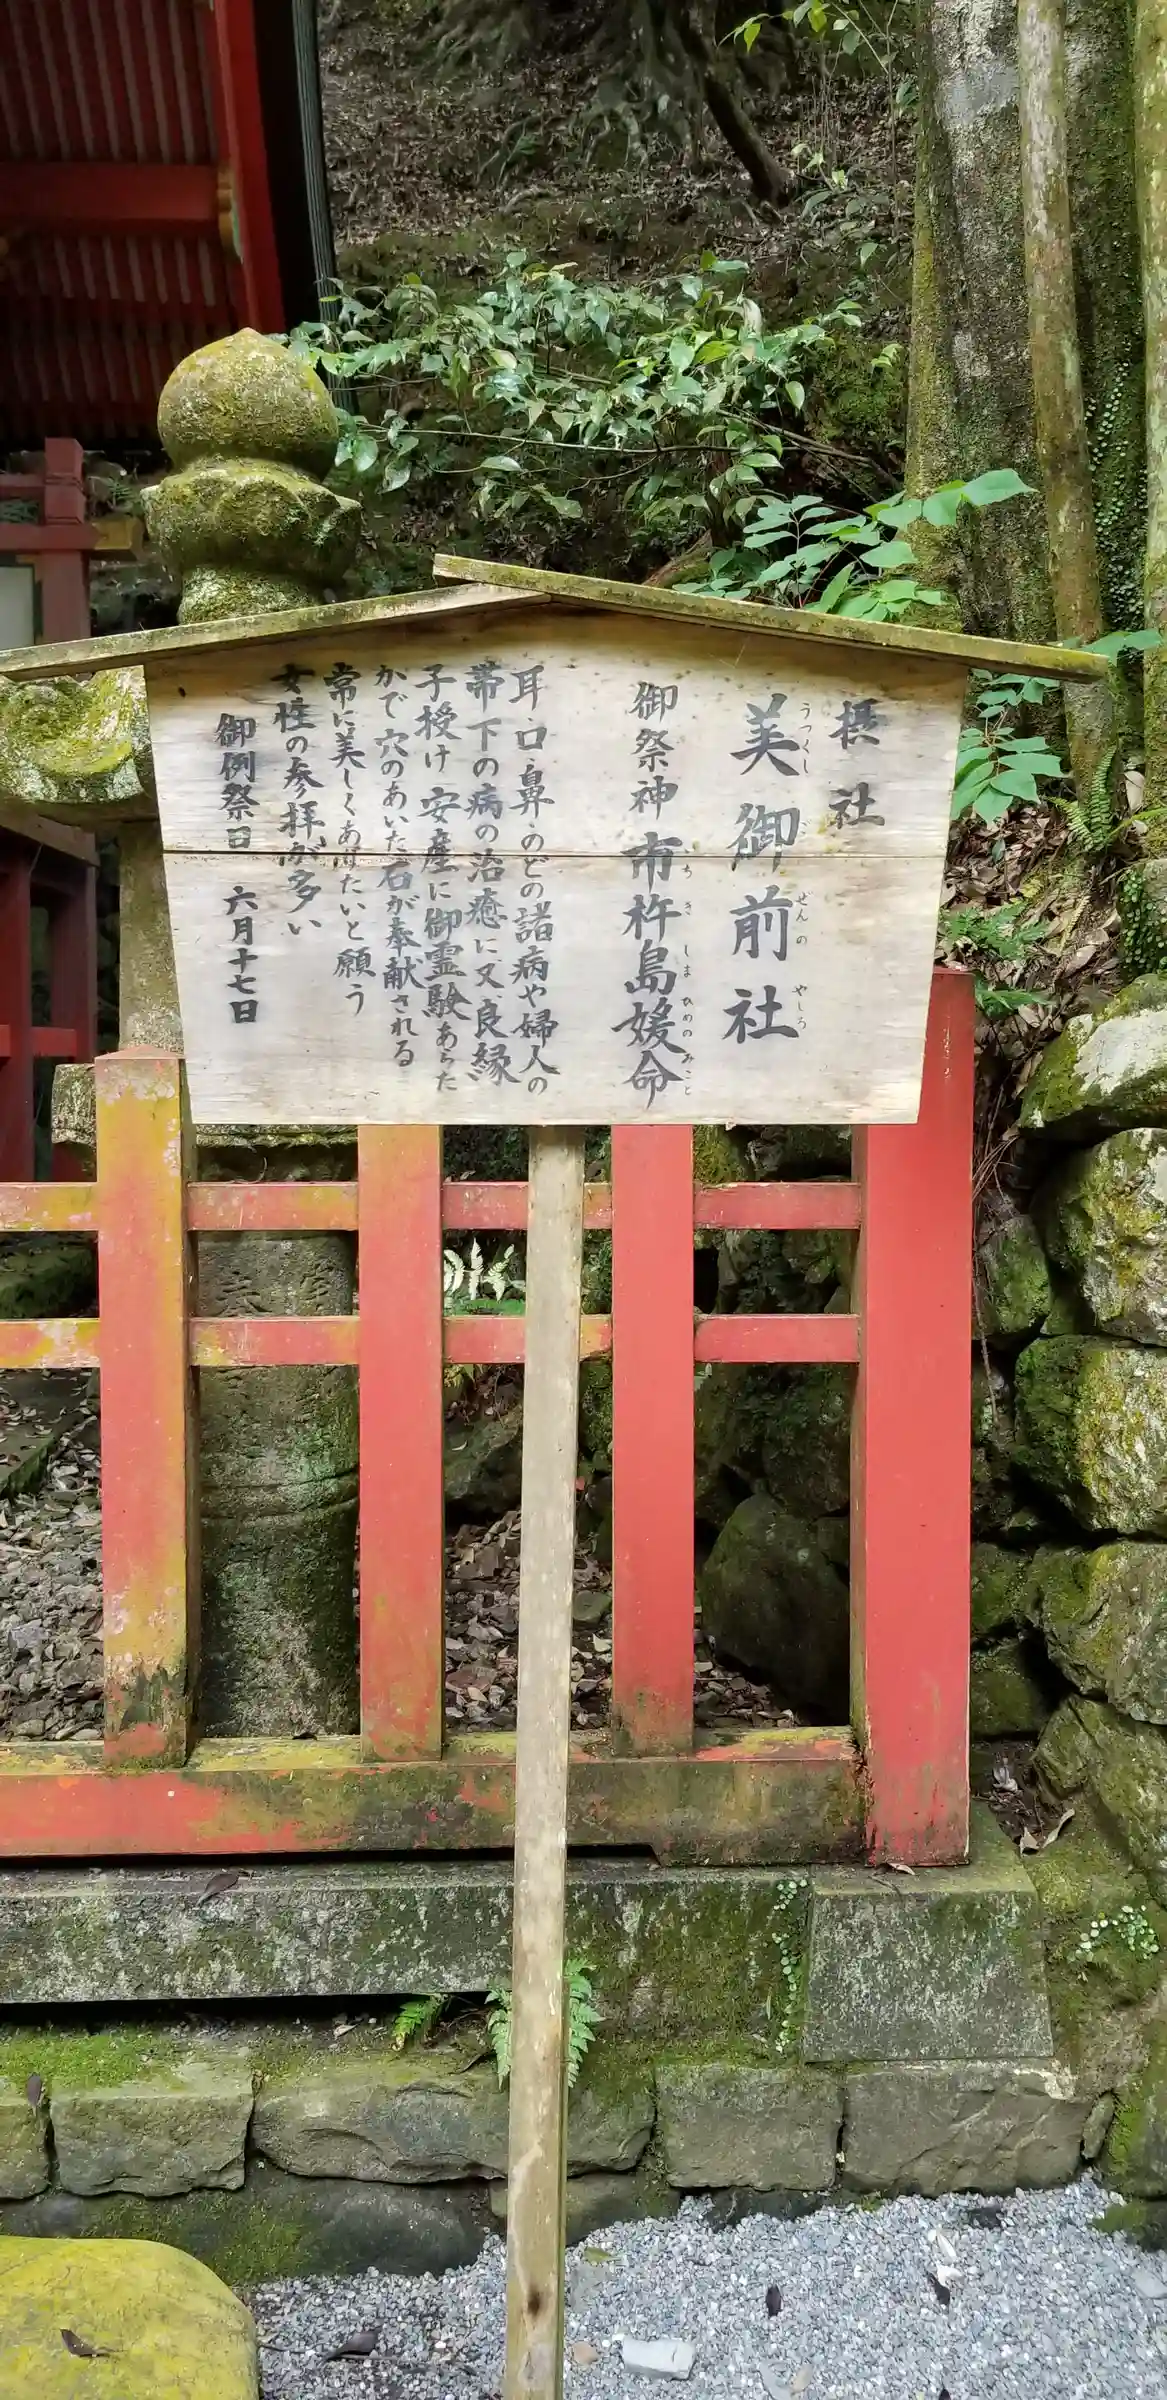 摂社
美御前社
うつくし ご ぜんの やしろ
御祭神 市杵島媛命
ち き しま ひめの みこと
耳・口・鼻・のどの諸病や婦人の
帯下の病の治癒に、又、良縁、
子授け 安産に御霊験あらた
かで穴のあいた石が奉献される
常に美しくありたいと願う
女性の参拝が多い
御例祭日 六月十七日